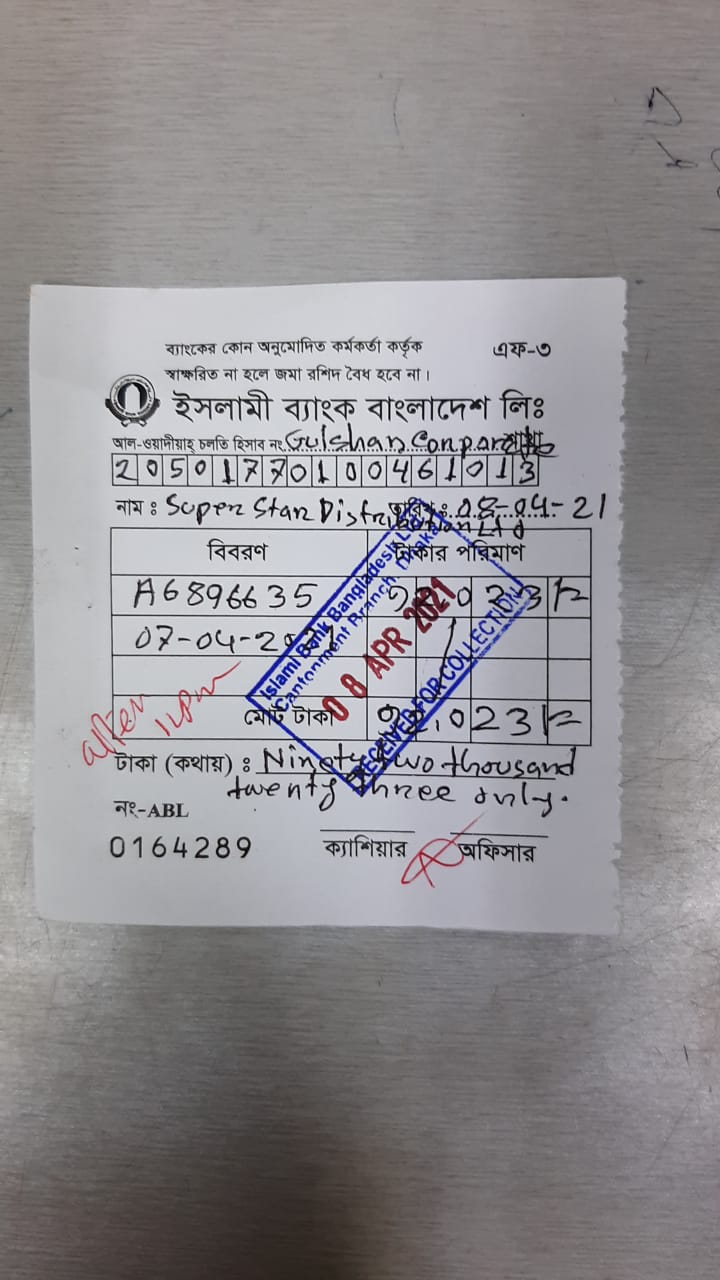 ব্যাংকের কোন অনুমোদিত কর্মকর্তা কর্তৃক এফ-৩
স্বাক্ষরিত না হলে জমা রশিদ বৈধ হবে না।
ইসলামী ব্যাংক বাংলাদেশ লিঃ
আল-ওয়াদীয়াহ্ চলতি হিসাব নং Gulshan শাখা
20501770100461013
নাম : Super Star Distribution Ltd তারিখ : 08-04-21
বিবরণ টাকার পরিমাণ
A6896635 92,023/=
07-04-2021
মোট টাকা 92,023/=
after 1pm
টাকা (কথায়) : Ninety two thousand
twenty three only.
নং-ABL
0164289 ক্যাশিয়ার অফিসার
Islami Bank Bangladesh Ltd.
Cantonment Branch, Dhaka
08 APR 2021
RECEIVED FOR COLLECTION